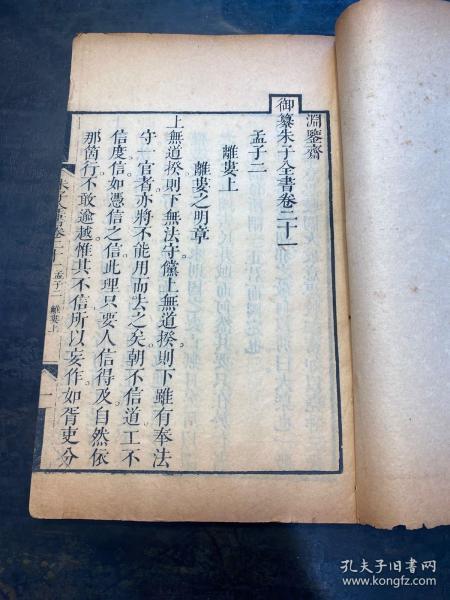 淵鑒齋
御纂朱子全書卷二十一
孟子二
離婁上
離婁之明章
上無道揆則下無法守儻上無道揆則下雖有奉法
守一官者亦將不能用而去之矣朝不信道工不
信度信如憑信之信此理只要人信得及自然依
那箇行不敢逾越惟其不信所以妄作如胥吏分
孟子二 離婁上
一
孔夫子旧书网
www.kongfz.com